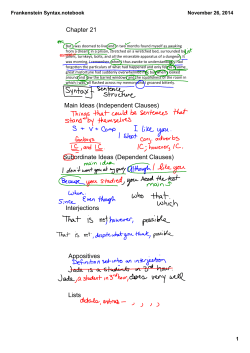 Frankenstein Syntax.notebook
November 26, 2014
Chapter 21
But I was doomed to live and in two months found myself as awaking
from a dream, in a prison, stretched on a wretched bed, surrounded by
gaolers, turnkeys, bolts, and all the miserable apparatus of a dungeon. It
was morning, I remember, when I thus awoke to understanding; I had
forgotten the particulars of what had happened and only felt as if some
great misfortune had suddenly overwhelmed me; but when I looked
around and saw the barred windows and the squalidness of the room in
which I was, all flashed across my memory and I groaned bitterly.
Syntax - sentence
structure
Main Ideas (Independent Clauses)
Things that could be sentences that
stand by themselves
S + V + Comp. I like you.
Fanboys
IC, and IC
Conj. adverbs
IC; however, IC.
Subordinate Ideas (Dependent Clauses)
main idea
I don't want you at my party, although I like you
Because you studied, you passed the test
main S
when
Even
Since
though
who that
which
Interjections
That is not, however, possible
That is not, despite what you think, possible
Appositives
Definition set into an interjection,
Jade is a student in 3rd hour.
Jade, a student in 3rd hour, does very well
Lists
details, extras - , , , ,
1